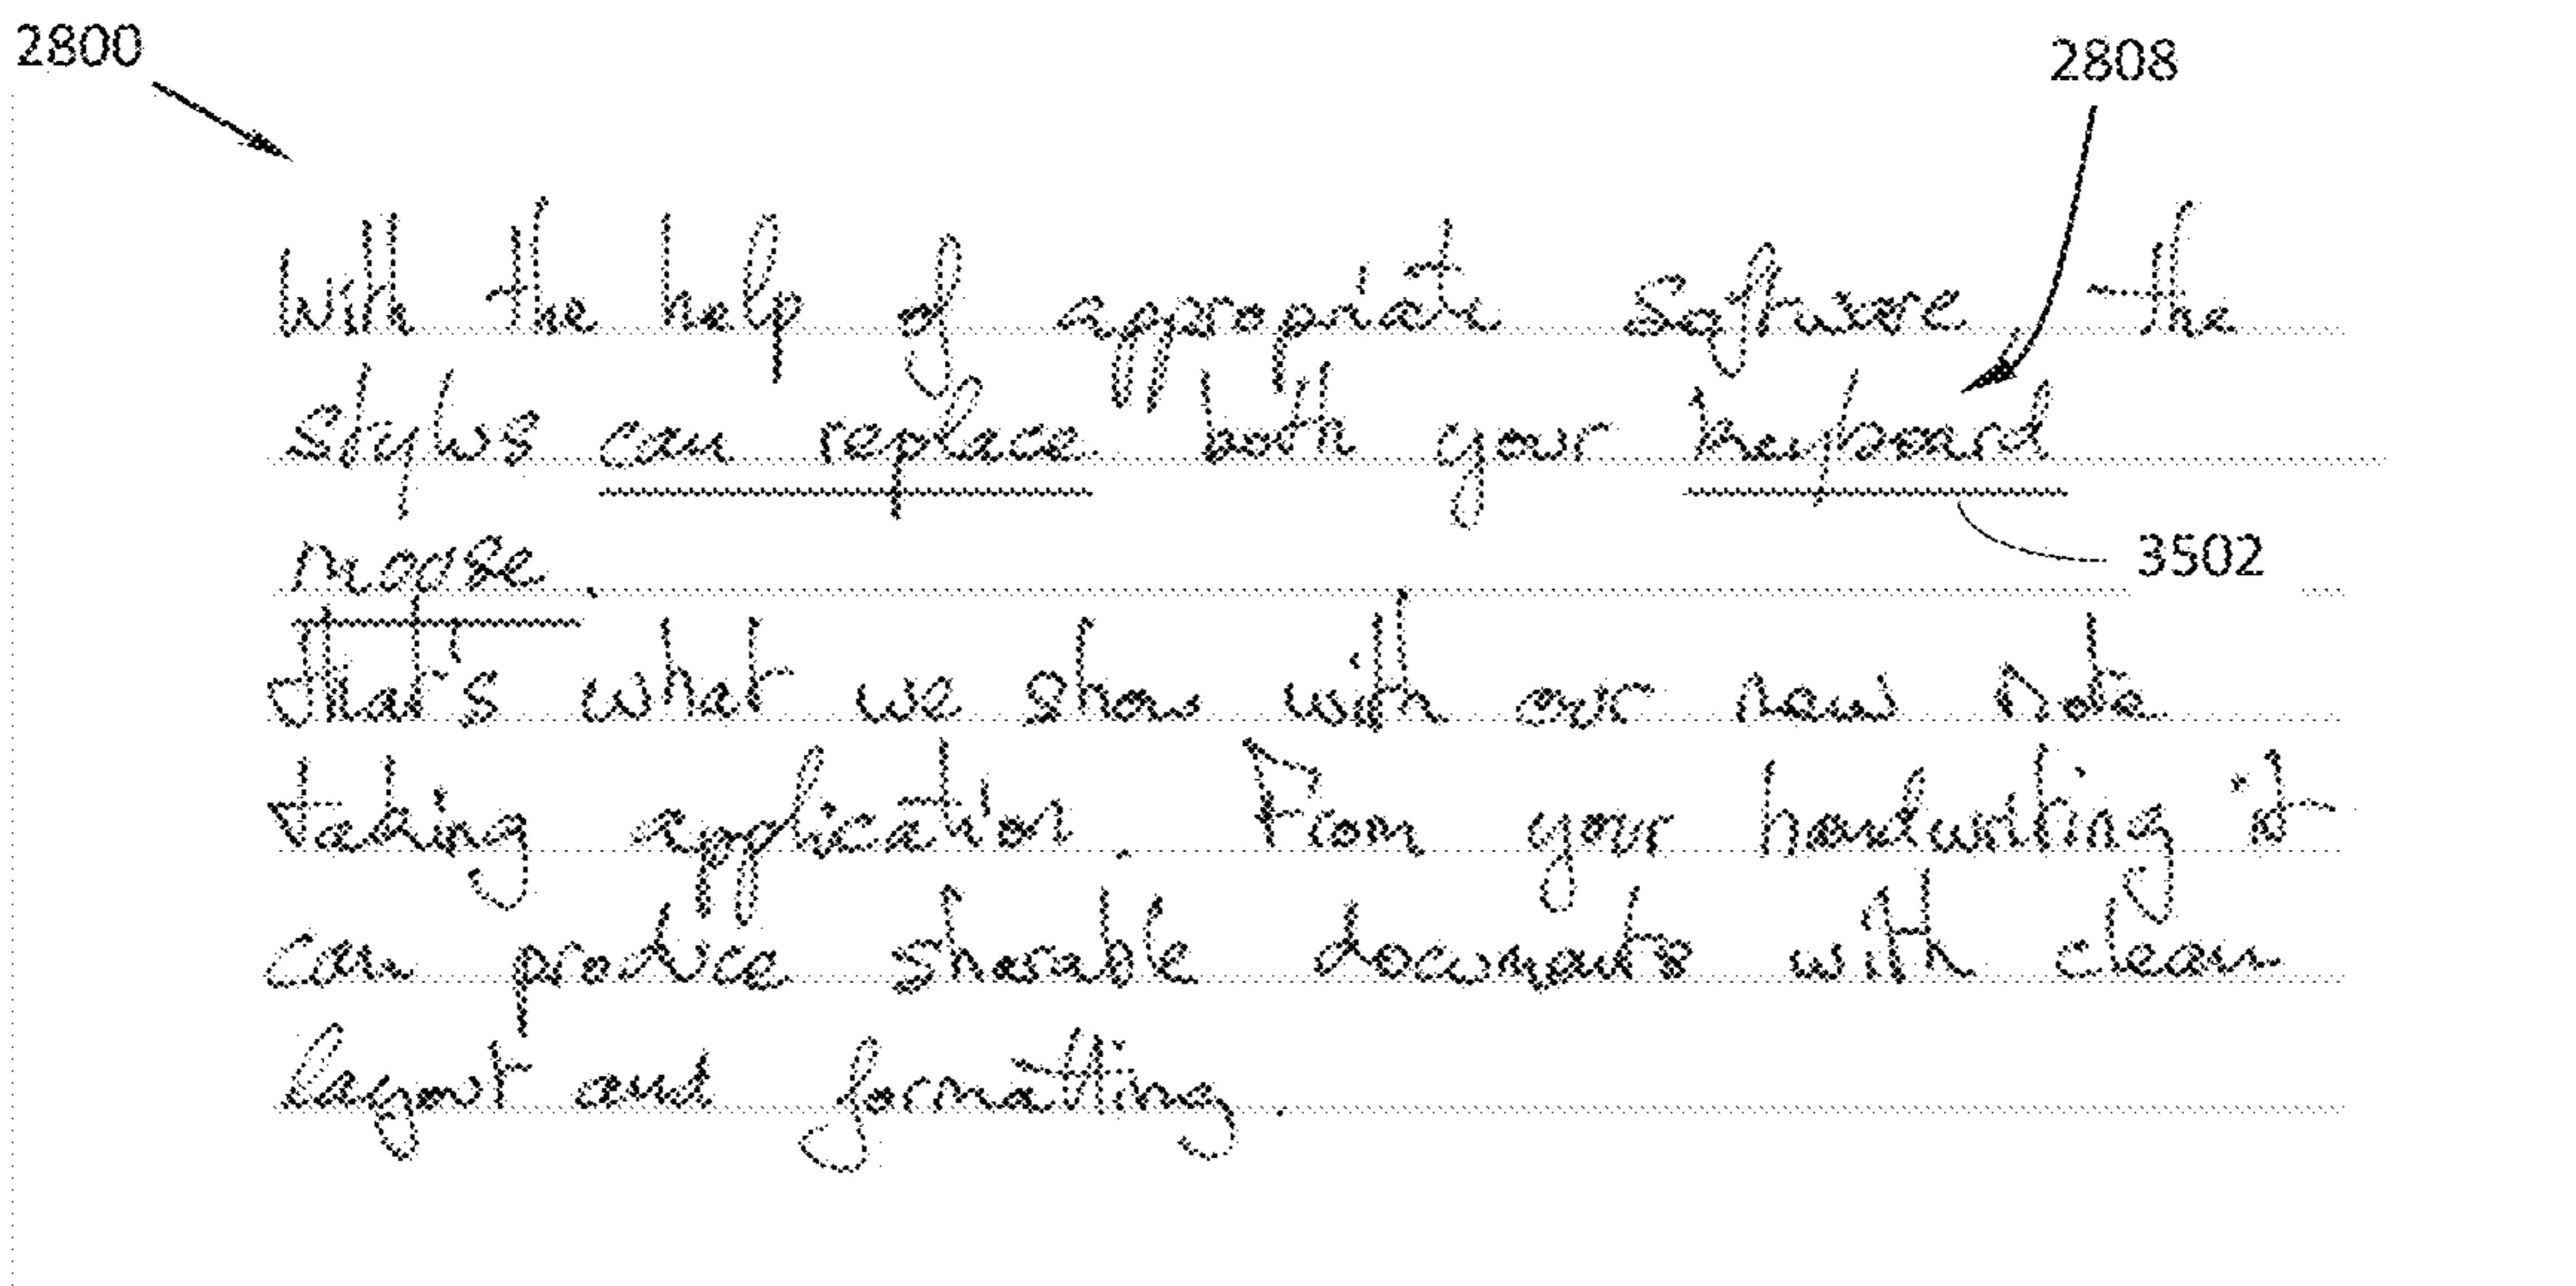 2800
2808
With the help of appropriate software the
stylus can replace both your keyboard
3502
moose.
that's what we show with our new note
taking application. From your handwriting it
can produce sharable documents with clean
layout and formatting.